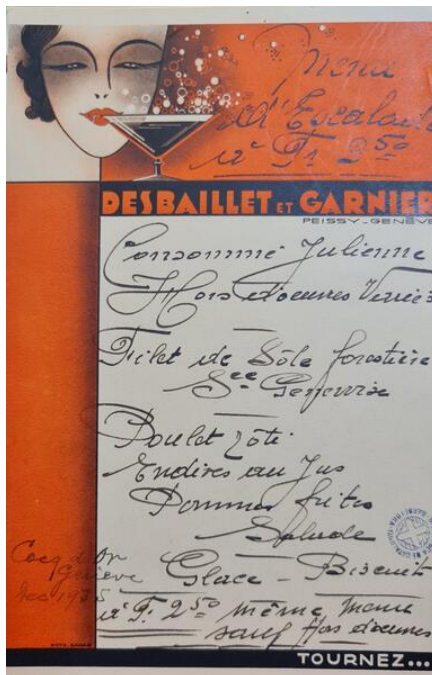 Menu
d'Escalade
à Fr 2 50
DESBAILLET ET GARNIER
PEISSY-GENÈVE
Consommé Julienne
Hors d'oeuvres Variés
Filet de Sôle forestière
Sce Genevoise
Poulet rôti
Endives au Jus
Pommes frites
Salade
Glace - Biscuit
Coq d'Or
Genève
Dec 1935
à Fr. 2 50 même menu
sauf Hors d'oeuvres
TOURNEZ...